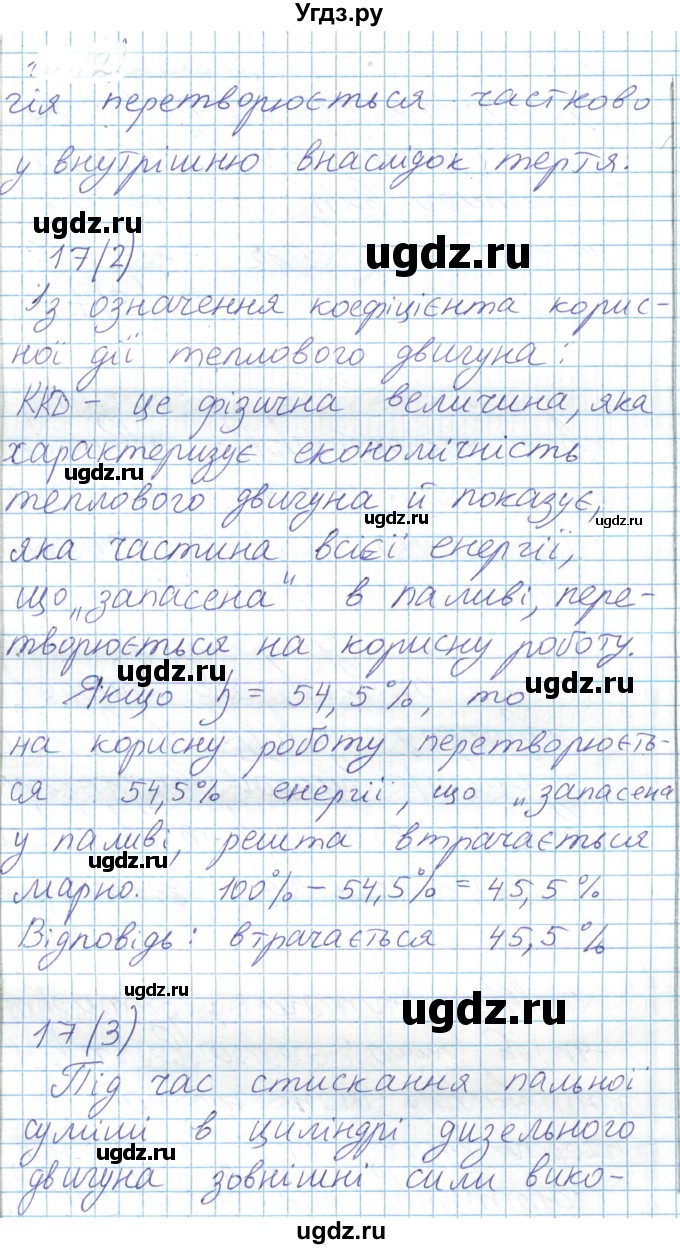 Угдз.ру
гія перетворюється частково
у внутрішню внаслідок тертя.
ugdz.ru
17(2)
ugdz.ru
Із означення коефіцієнта корис-
ної дії теплового двигуна:
ККД – це фізична величина, яка
характеризує економічність
ugdz.ru
теплового двигуна й показує,
ugdz.ru
ugdz.ru
яка частина всієї енергії,
що „запасена" в паливі, пере-
творюється на корисну роботу.
ugdz.ru
ugdz.ru
Якщо η = 54,5%, то
на корисну роботу перетворюєть-
ся 54,5% енергії, що „запасена
у паливі, решта втрачається
ugdz.ru
марно. 100% – 54,5% = 45,5%
Відповідь: втрачається 45,5%
ugdz.ru
ugdz.ru
17(3)
Під час стискання пальної
суміші в циліндрі дизельного
ugdz.ru
двигуна зовнішні сили вико-
ugdz.ru